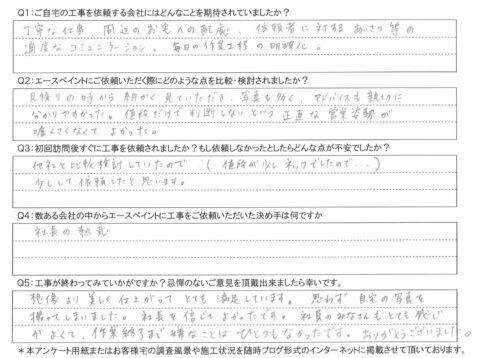 Q1：ご自宅の工事を依頼する会社にはどんなことを期待されていましたか？
丁寧な仕事、周辺のお宅への配慮、依頼者に対するあいさつ等の
適度なコミュニケーション。毎日の作業工程の明確化。
Q2：エースペイントにご依頼いただく際にどのような点を比較・検討されましたか？
見積りの時から細かく見ていただき、写真も多く、アドバイスも親切に
分かりやすかった。値段だけで判断しないという正直な営業姿勢が
嘘くさくなくてよかった。
Q3：初回訪問後すぐに工事を依頼されましたか？もし依頼しなかったとしたらどんな点が不安でしたか？
他社と比較検討していたので（値段が少しネックでしたので…）
少しして依頼したと思います。
Q4：数ある会社の中からエースペイントに工事をご依頼いただいた決め手は何ですか
社長の熱意
Q5：工事が終わってみていかがですか？忌憚のないご意見を頂戴出来ましたら幸いです。
想像より美しく仕上がってとても満足しています。思わず自宅の写真を
撮ってしまいました。社長を信じてよかったです。社員のみなさんもとても感じ
がよくて、作業終了まで嫌なことはひとつもなかったです。ありがとうございました。
＊本アンケート用紙またはお客様宅の調査風景や施工状況を随時ブログ形式のインターネットに掲載させて頂いております。